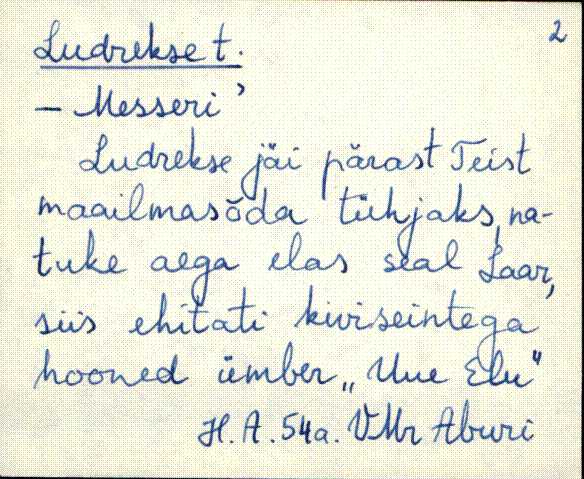 2
Ludrekse t.
– Messeri'
Ludrekse jäi pärast Teist
maailmasõda tühjaks, na-
tuke aega elas seal Laar,
siis ehitati kiviseintega
hooned ümber „Uue Elu"
H. A. 54a. VMr Aburi